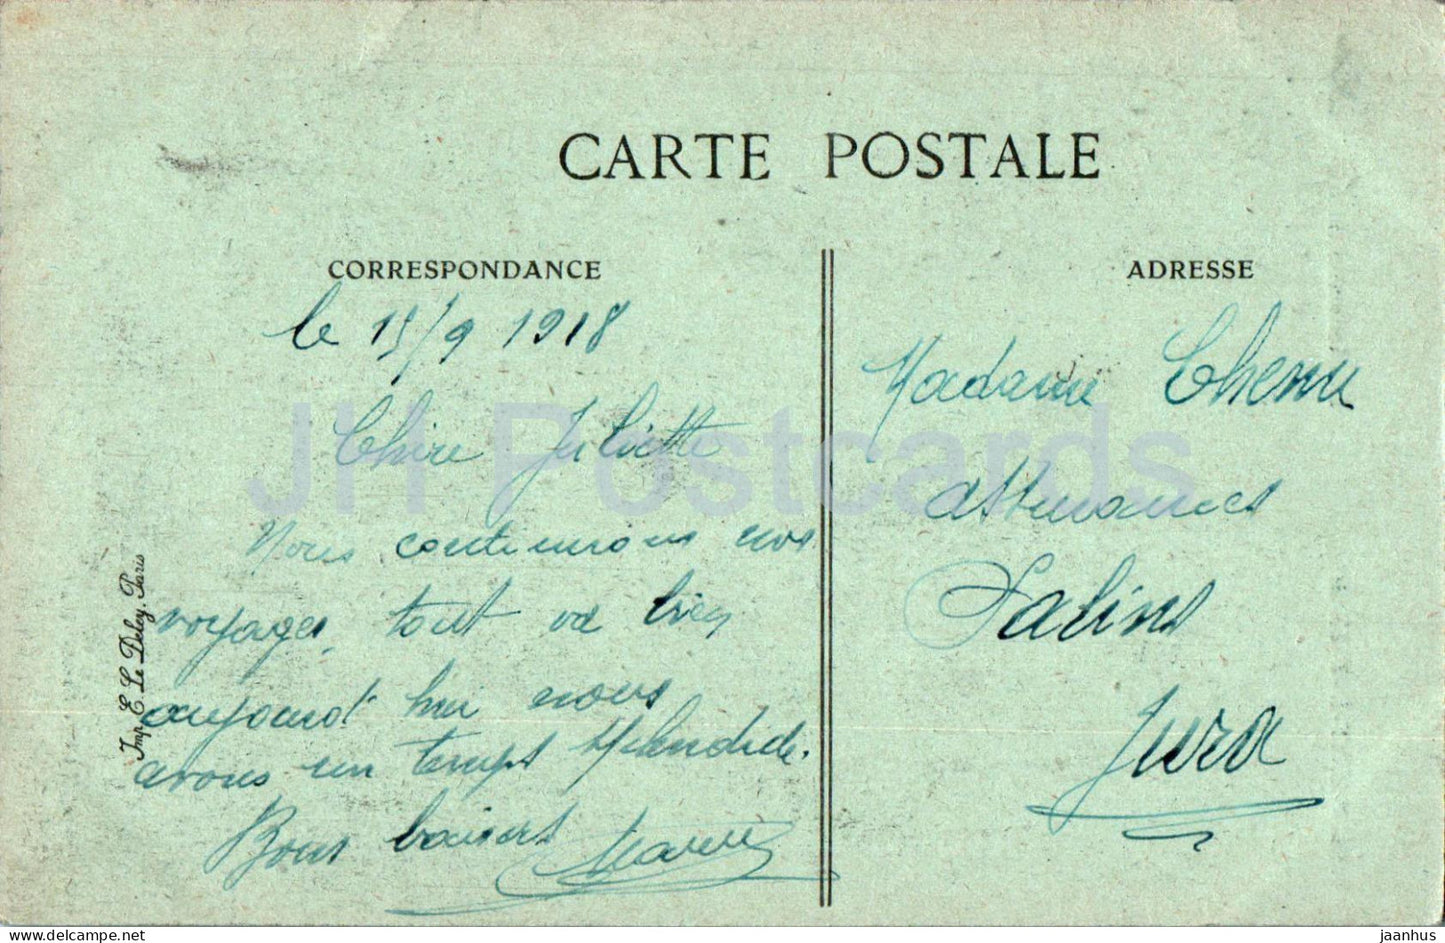 CARTE POSTALE
CORRESPONDANCE
le 15/9 1918
Chère Juliette
Nous continuons nos
voyages, tout va bien
aujourd'hui nous
avons un temps splendide.
Bons baisers
ADRESSE
Madame Chenu
Salins
Jura
Imp. E. Le Deley, Paris
JH Postcards
www.delcampe.net
jaanhus